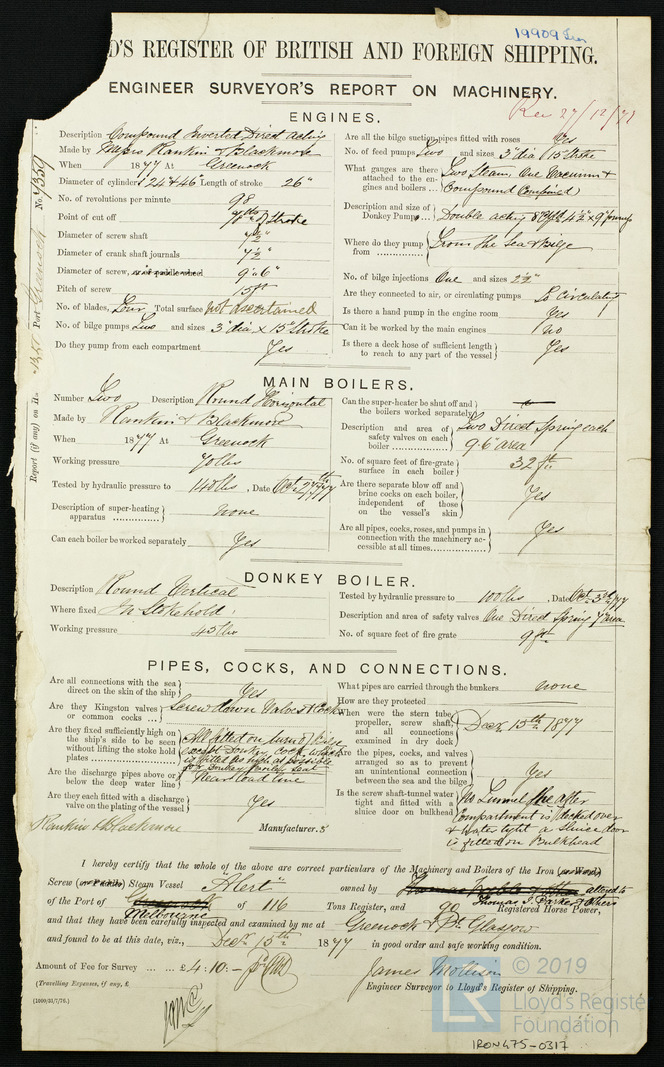 19909 Iron
D'S REGISTER OF BRITISH AND FOREIGN SHIPPING.
ENGINEER SURVEYOR'S REPORT ON MACHINERY.
Rec 27/12/77
ENGINES.
Description Compound Inverted Direct acting
Made by Messrs Rankin & Blackmore
When 1877 At Greenock
Diameter of cylinders 24" & 46" Length of stroke 26"
No. of revolutions per minute 98
Point of cut off stroke
Diameter of screw shaft 7½"
Diameter of crank shaft journals 7½"
Diameter of screw, or of paddle wheel 9' 6"
Pitch of screw 15 ft
No. of blades, Four Total surface not ascertained
No. of bilge pumps Two and sizes 3" dia x 15" Stroke
Do they pump from each compartment Yes
Are all the bilge suction pipes fitted with roses Yes
No. of feed pumps Two and sizes 3" dia 15" Stroke
What gauges are there attached to the engines and boilers ... Two Steam, One Vacuum & Compound Combined
Description and size of Donkey Pumps .. Double acting
Where do they pump from ............ From the Sea & Bilge
No. of bilge injections One and sizes
Are they connected to air, or circulating pumps To Circulating
Is there a hand pump in the engine room Yes
Can it be worked by the main engines No
Is there a deck hose of sufficient length to reach to any part of the vessel Yes
Report (if any) on H Port Greenock No. 4359
MAIN BOILERS.
Number Two Description Round Horizontal
Made by Rankin & Blackmore
When 1877 At Greenock
Working pressure 70 lbs
Tested by hydraulic pressure to 140 lbs, Date Oct 27th/77
Description of super-heating apparatus ............... none
Can each boiler be worked separately Yes
Can the super-heater be shut off and the boilers worked separately
Description and area of safety valves on each boiler ............... Two Direct Spring each 9.6" area
No. of square feet of fire-grate surface in each boiler 32 ft
Are there separate blow off and brine cocks on each boiler, independent of those on the vessel's skin Yes
Are all pipes, cocks, roses, and pumps in connection with the machinery accessible at all times......... Yes
DONKEY BOILER.
Description Round Vertical
Where fixed In Stokehold
Working pressure 45 lbs
Tested by hydraulic pressure to 100 lbs, Date Oct 3rd/77
Description and area of safety valves One Direct Spring 7" area
No. of square feet of fire grate 9 ft
PIPES, COCKS, AND CONNECTIONS.
Are all connections with the sea direct on the skin of the ship Yes
Are they Kingston valves or common cocks ... Screw down Valves & Cocks
Are they fixed sufficiently high on the ship's side to be seen without lifting the stoke hold plates ............... All fitted on turn of bilge except Donkey cock which is fitted as high as possible for Donkey boiler seat
Are the discharge pipes above or below the deep water line Near load line
Are they each fitted with a discharge valve on the plating of the vessel Yes
What pipes are carried through the bunkers none
How are they protected
When were the stern tube, propeller, screw shaft, and all connections examined in dry dock Decr 15th 1877
Are the pipes, cocks, and valves arranged so as to prevent an unintentional connection between the sea and the bilge Yes
Is the screw shaft-tunnel water tight and fitted with a sluice door on bulkhead No Tunnel the after Compartment is decked over & Water tight a Sluice door is fitted on Bulkhead
Rankin & Blackmore Manufacturers
I hereby certify that the whole of the above are correct particulars of the Machinery and Boilers of the Iron (or Wood)
Screw (or Paddle) Steam Vessel "Alert" owned by altered to Thomas J. Parker & Others
of the Port of Greenock Melbourne of 116 Tons Register, and 90 Registered Horse Power,
and that they have been carefully inspected and examined by me at Greenock & Pt Glasgow
and found to be at this date, viz., Decr 15th 1877 in good order and safe working condition.
Amount of Fee for Survey ... ... £4:10:-
James Mollison
(Travelling Expenses, if any, £
Engineer Surveyor to Lloyd's Register of Shipping.
(1000/31/7/76.)
© 2019
LR
Lloyd's Register
Foundation
IRON475-0317